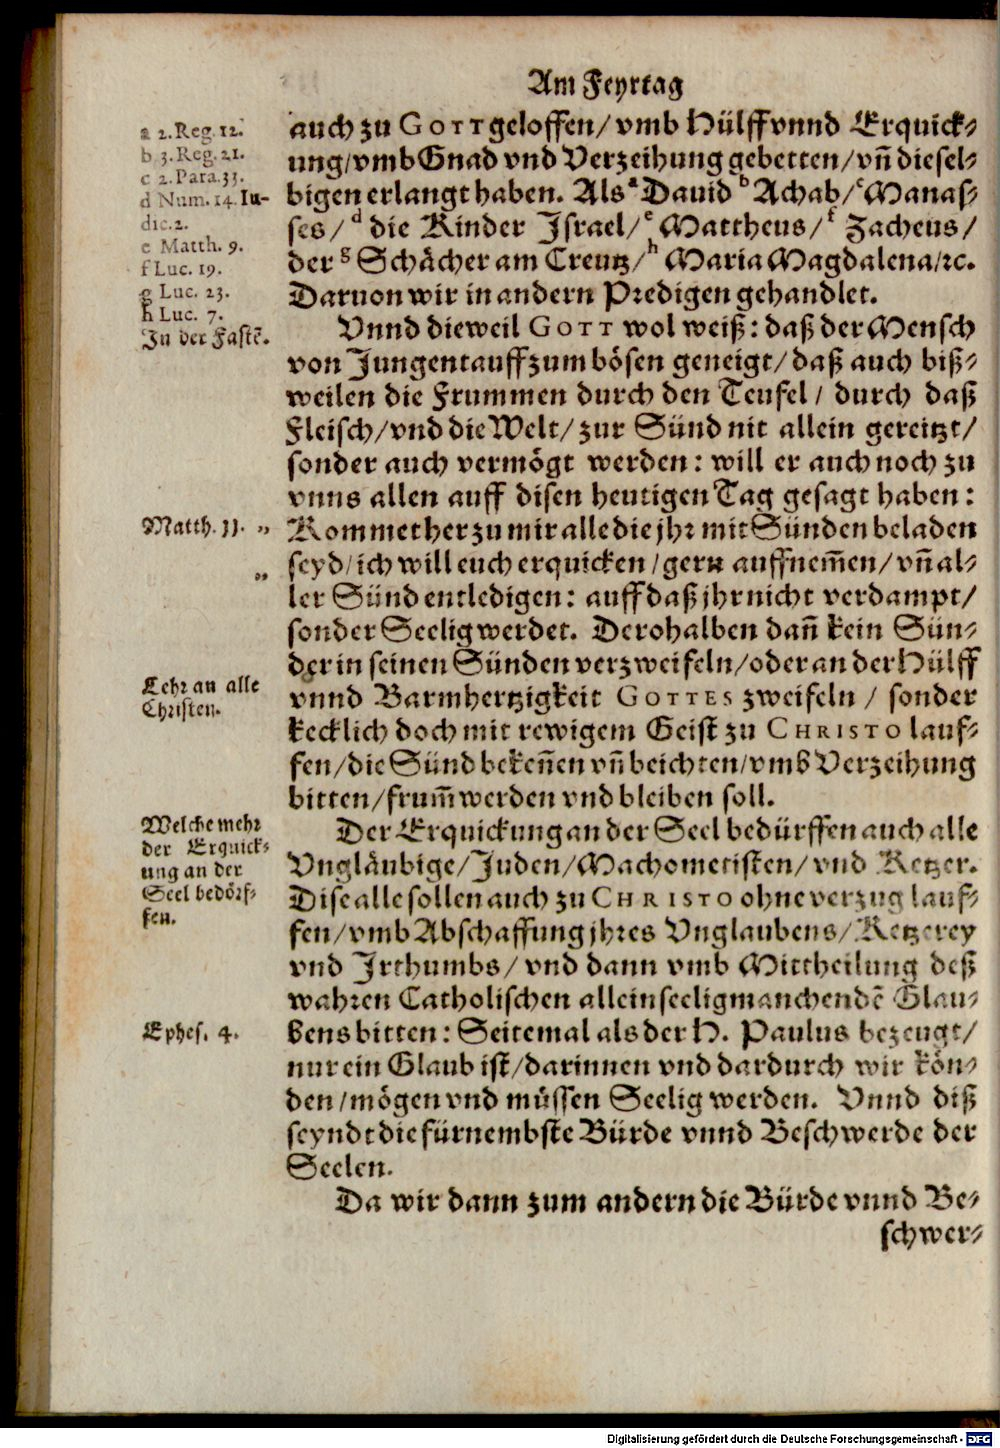 Am Feyrtag
a 2. Reg. 12.
b 3. Reg. 21.
c 2. Para. 33.
d Num. 14. Iu-
dic. 2.
e Matth. 9.
f Luc. 19.
g Luc. 23.
h Luc. 7.
In der Fastē.
auch zu GOTT geloffen/ vmb Hülff vnnd Erquick-
ung/ vmb Gnad vnd Verzeihung gebetten/ vñ diesel-
bigen erlangt haben. Als ᵃ Dauid ᵇ Achab/ ᶜ Manas-
ses/ ᵈ die Kinder Israel/ ᵉ Mattheus/ ᶠ Zacheus/
der ᵍ Schächer am Creutz/ ʰ Maria Magdalena/ ꝛc.
Daruon wir in andern Predigen gehandlet.
Vnnd dieweil GOTT wol weiß: daß der Mensch
von Jungent auff zum bösen geneigt/ daß auch biß-
weilen die Frummen durch den Teufel/ durch daß
Fleisch/ vnd die Welt/ zur Sünd nit allein gereitzt/
sonder auch vermögt werden: will er auch noch zu
vnns allen auff disen heutigen Tag gesagt haben:
Matth. 11. „
Kommet her zu mir alle die jhr mit Sünden beladen
„
seyd/ ich will euch erquicken/ gern auffnem̄en/ vñ al-
ler Sünd entledigen: auff daß jhr nicht verdampt/
sonder Seelig werdet. Derohalben dañ kein Sün-
der in seinen Sünden verzweifeln/ oder an der Hülff
Lehr an alle
Christen.
vnnd Barmhertzigkeit GOTTES zweifeln/ sonder
kecklich doch mit rewigem Geist zu CHRISTO lauf-
fen/ die Sünd bekeñen vñ beichten/ vmb Verzeihung
bitten/ frum̄ werden vnd bleiben soll.
Welche mehr
der Erquick-
ung an der
Seel bedörf-
fen.
Der Erquickung an der Seel bedürffen auch alle
Vngläubige/ Juden/ Machometisten/ vnd Ketzer.
Dise alle sollen auch zu CHRISTO ohne verzug lauf-
fen/ vmb Abschaffung jhres Vnglaubens/ Ketzerey
vnd Irthumbs/ vnd dann vmb Mittheilung deß
wahren Catholischen allein seeligmanchendē Glau-
Ephes. 4.
bens bitten: Seitemal als der H. Paulus bezeugt/
nur ein Glaub ist/ darinnen vnd dardurch wir kön-
den/ mögen vnd müssen Seelig werden. Vnnd diß
seyndt die fürnembste Bürde vnnd Beschwerde der
Seelen.
Da wir dann zum andern die Bürde vnnd Be-
schwer-
Digitalisierung gefördert durch die Deutsche Forschungsgemeinschaft - DFG